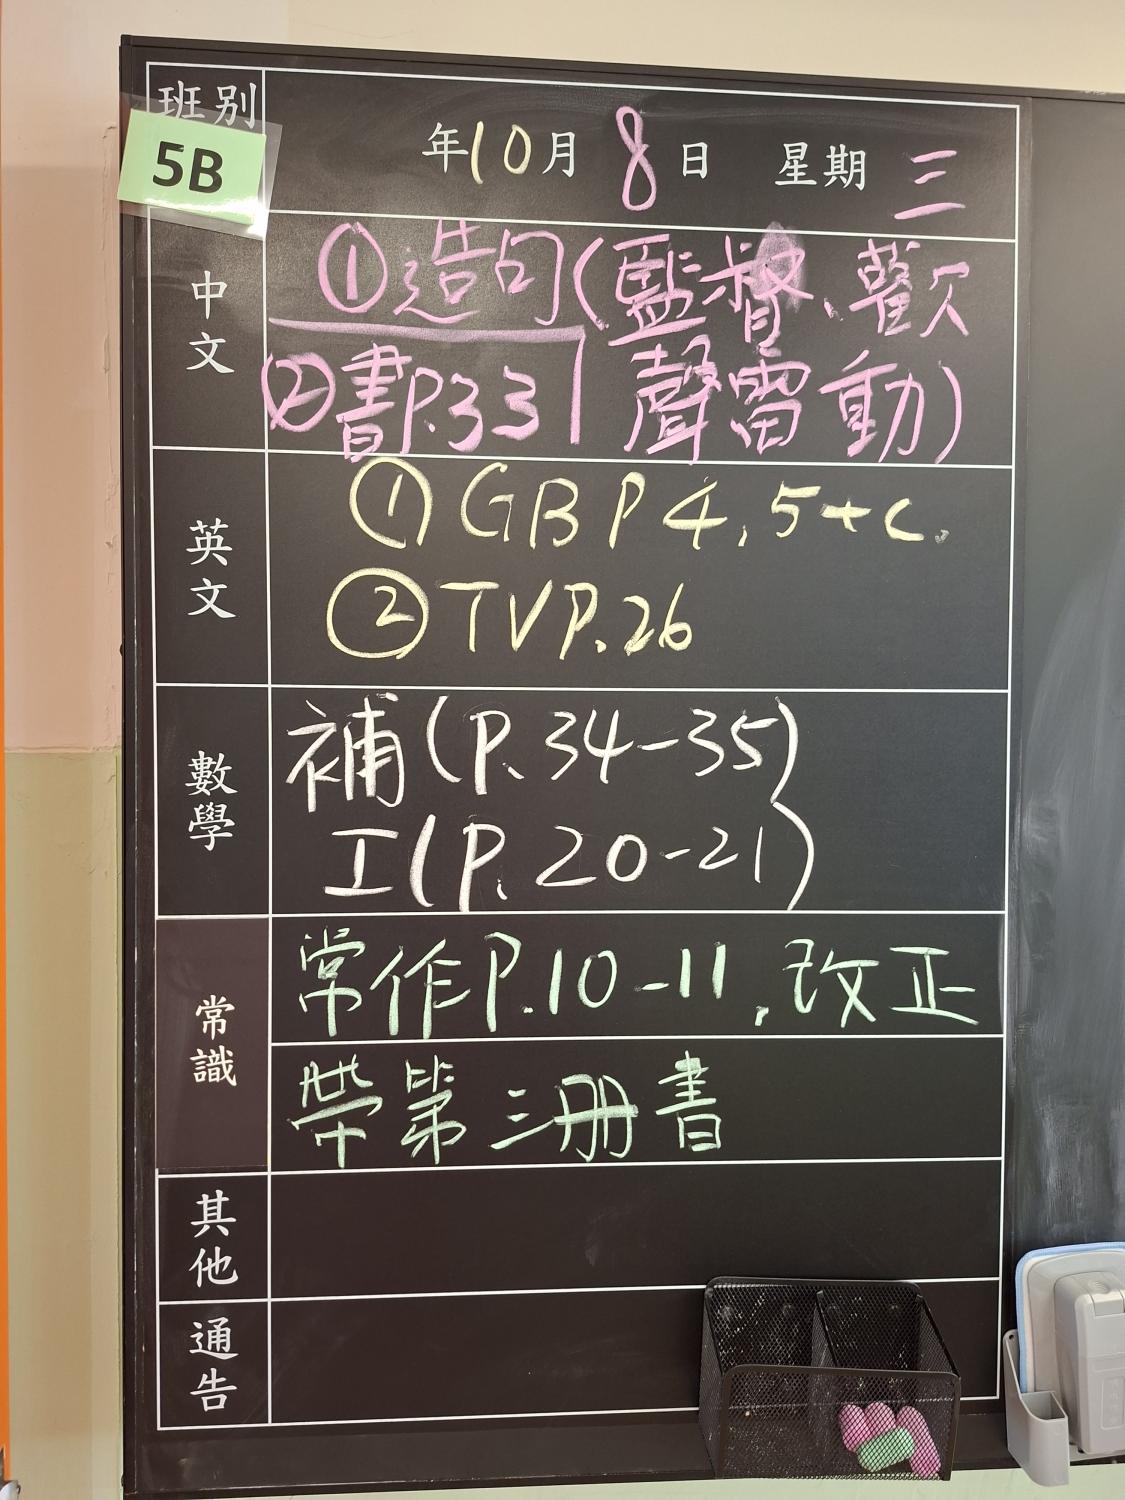 班別
5B
年10月8日 星期三
中文
①造句(監督、歡
聲雷動)
②書P.33
英文
①GBP4,5+c.
②TVP.26
數學
補(P.34-35)
工(P.20-21)
常識
常作P.10-11,改正
帶第三冊書
其他
通告